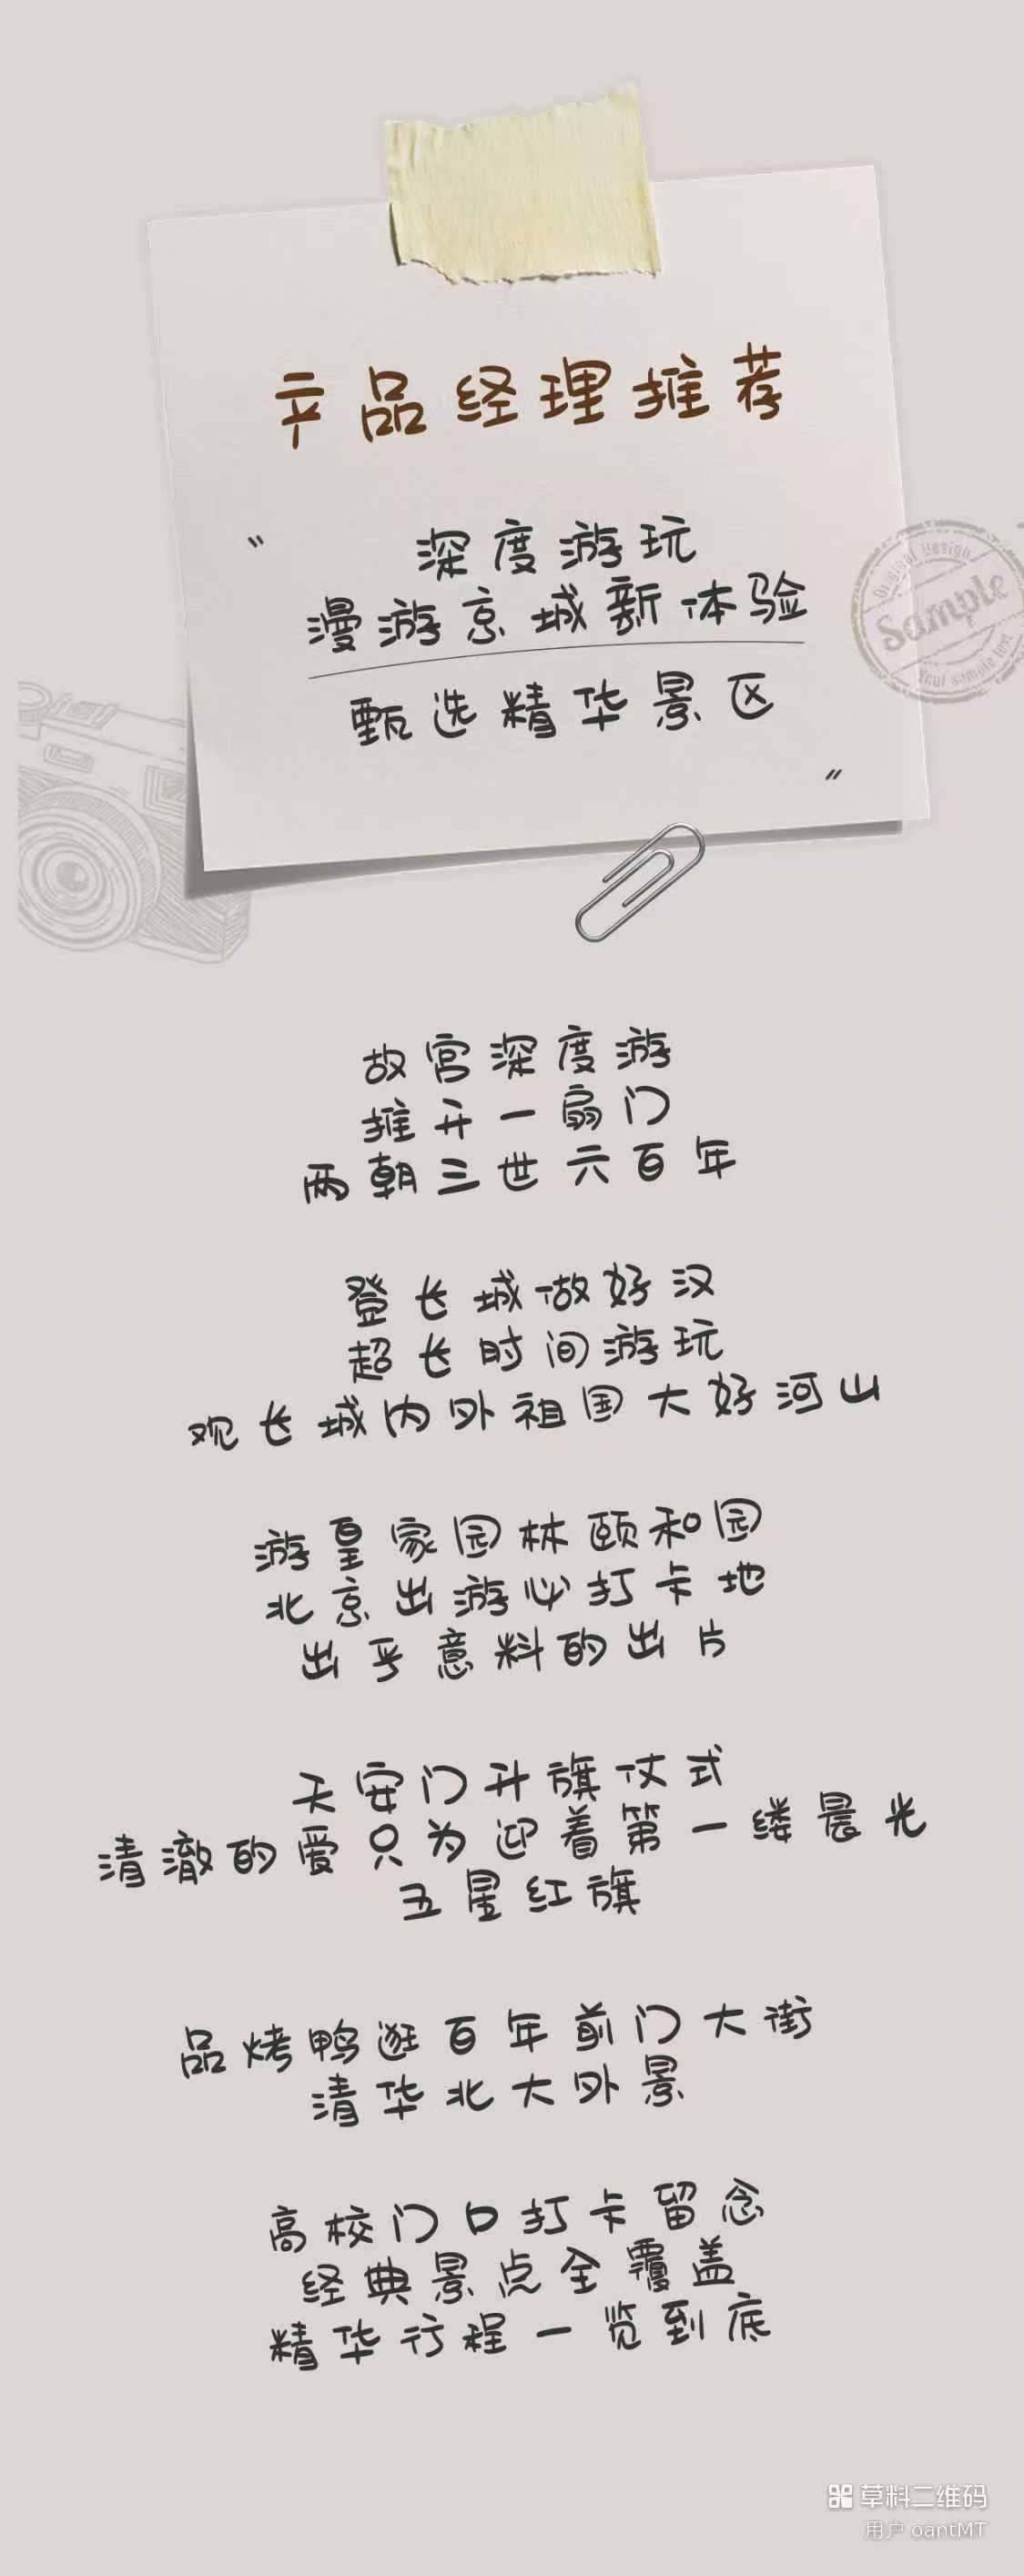 产品经理推荐
"
深度游玩
漫游京城新体验
甄选精华景区
"
Original Design
Sample
Your sample text
故宫深度游
推开一扇门
两朝三世六百年
登长城做好汉
超长时间游玩
观长城内外祖国大好河山
游皇家园林颐和园
北京出游必打卡地
出乎意料的出片
天安门升旗仪式
清澈的爱只为迎着第一缕晨光
五星红旗
品烤鸭逛百年前门大街
清华北大外景
高校门口打卡留念
经典景点全覆盖
精华行程一览到底
草料二维码
用户 oantMT